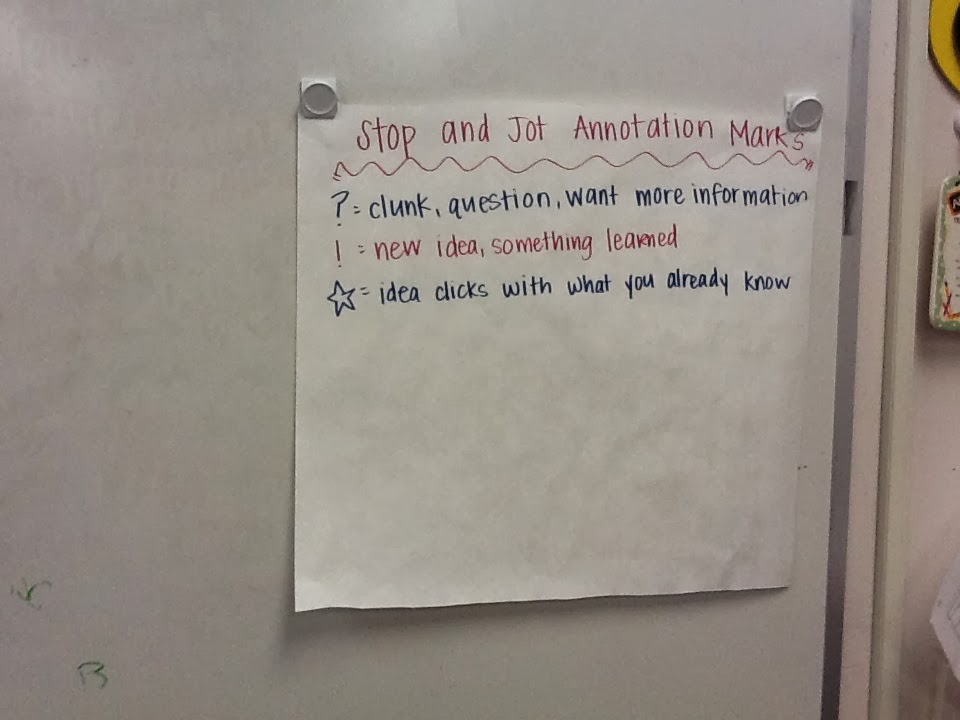 Stop and Jot Annotation Marks
? = clunk, question, want more information
! = new idea, something learned
☆ = idea clicks with what you already know
B